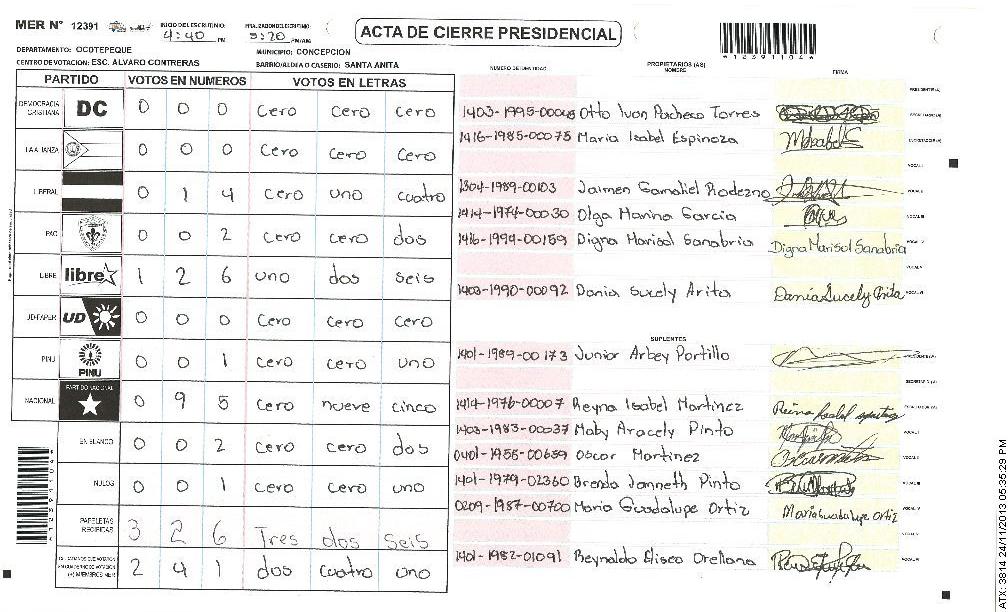 MER N° 12391
INICIO DEL ESCRUTINIO: 4:40 PM
FINALIZACION DEL ESCRUTINIO: 5:20 PM/AM
ACTA DE CIERRE PRESIDENCIAL
*12391104*
DEPARTAMENTO: OCOTEPEQUE
MUNICIPIO: CONCEPCION
CENTRO DE VOTACION: ESC. ALVARO CONTRERAS
BARRIO/ALDEA O CASERIO: SANTA ANITA
PARTIDO VOTOS EN NUMEROS VOTOS EN LETRAS
DEMOCRACIA CRISTIANA DC 0 0 0 Cero Cero Cero
LA ALIANZA 0 0 0 Cero Cero Cero
LIBERAL 0 1 4 Cero uno cuatro
PAC 0 0 2 Cero Cero dos
LIBRE libre 1 2 6 uno dos seis
UD FAPER UD 0 0 0 Cero Cero Cero
PINU PINU 0 0 1 Cero Cero uno
NACIONAL PARTIDO NACIONAL 0 9 5 Cero nueve cinco
EN BLANCO 0 0 2 Cero Cero dos
NULOS 0 0 1 Cero Cero uno
PAPELETAS RECIBIDAS 3 2 6 Tres dos seis
2 4 1 dos cuatro uno
NUMERO DE IDENTIDAD PROPIETARIOS (AS) NOMBRE FIRMA
Otto Ivan Pacheco Torres
1416-1985-00078 Maria Isabel Espinoza
1304-1989-00103 Jaimen Gamaliel Rodezno
1414-1974-00030 Olga Marina Garcia
1416-1994-00159 Digna Marisol Sanabria Digna Marisol Sanabria
1403-1990-00092 Dania Sucely Arita Dania Sucely Arita
SUPLENTES
1401-1989-00173 Junior Arbey Portillo
1414-1976-00007 Reyna Isabel Martinez
1403-1983-00037 Maby Aracely Pinto
0401-1955-00659 Oscar Martinez
1401-1979-02360 Brenda Janneth Pinto
0209-1987-00700 Maria Guadalupe Ortiz Maria Guadalupe Ortiz
1401-1982-01091 Reynaldo Eliseo Orellana
ATX: 3814 24/11/2013 05:35:29 PM